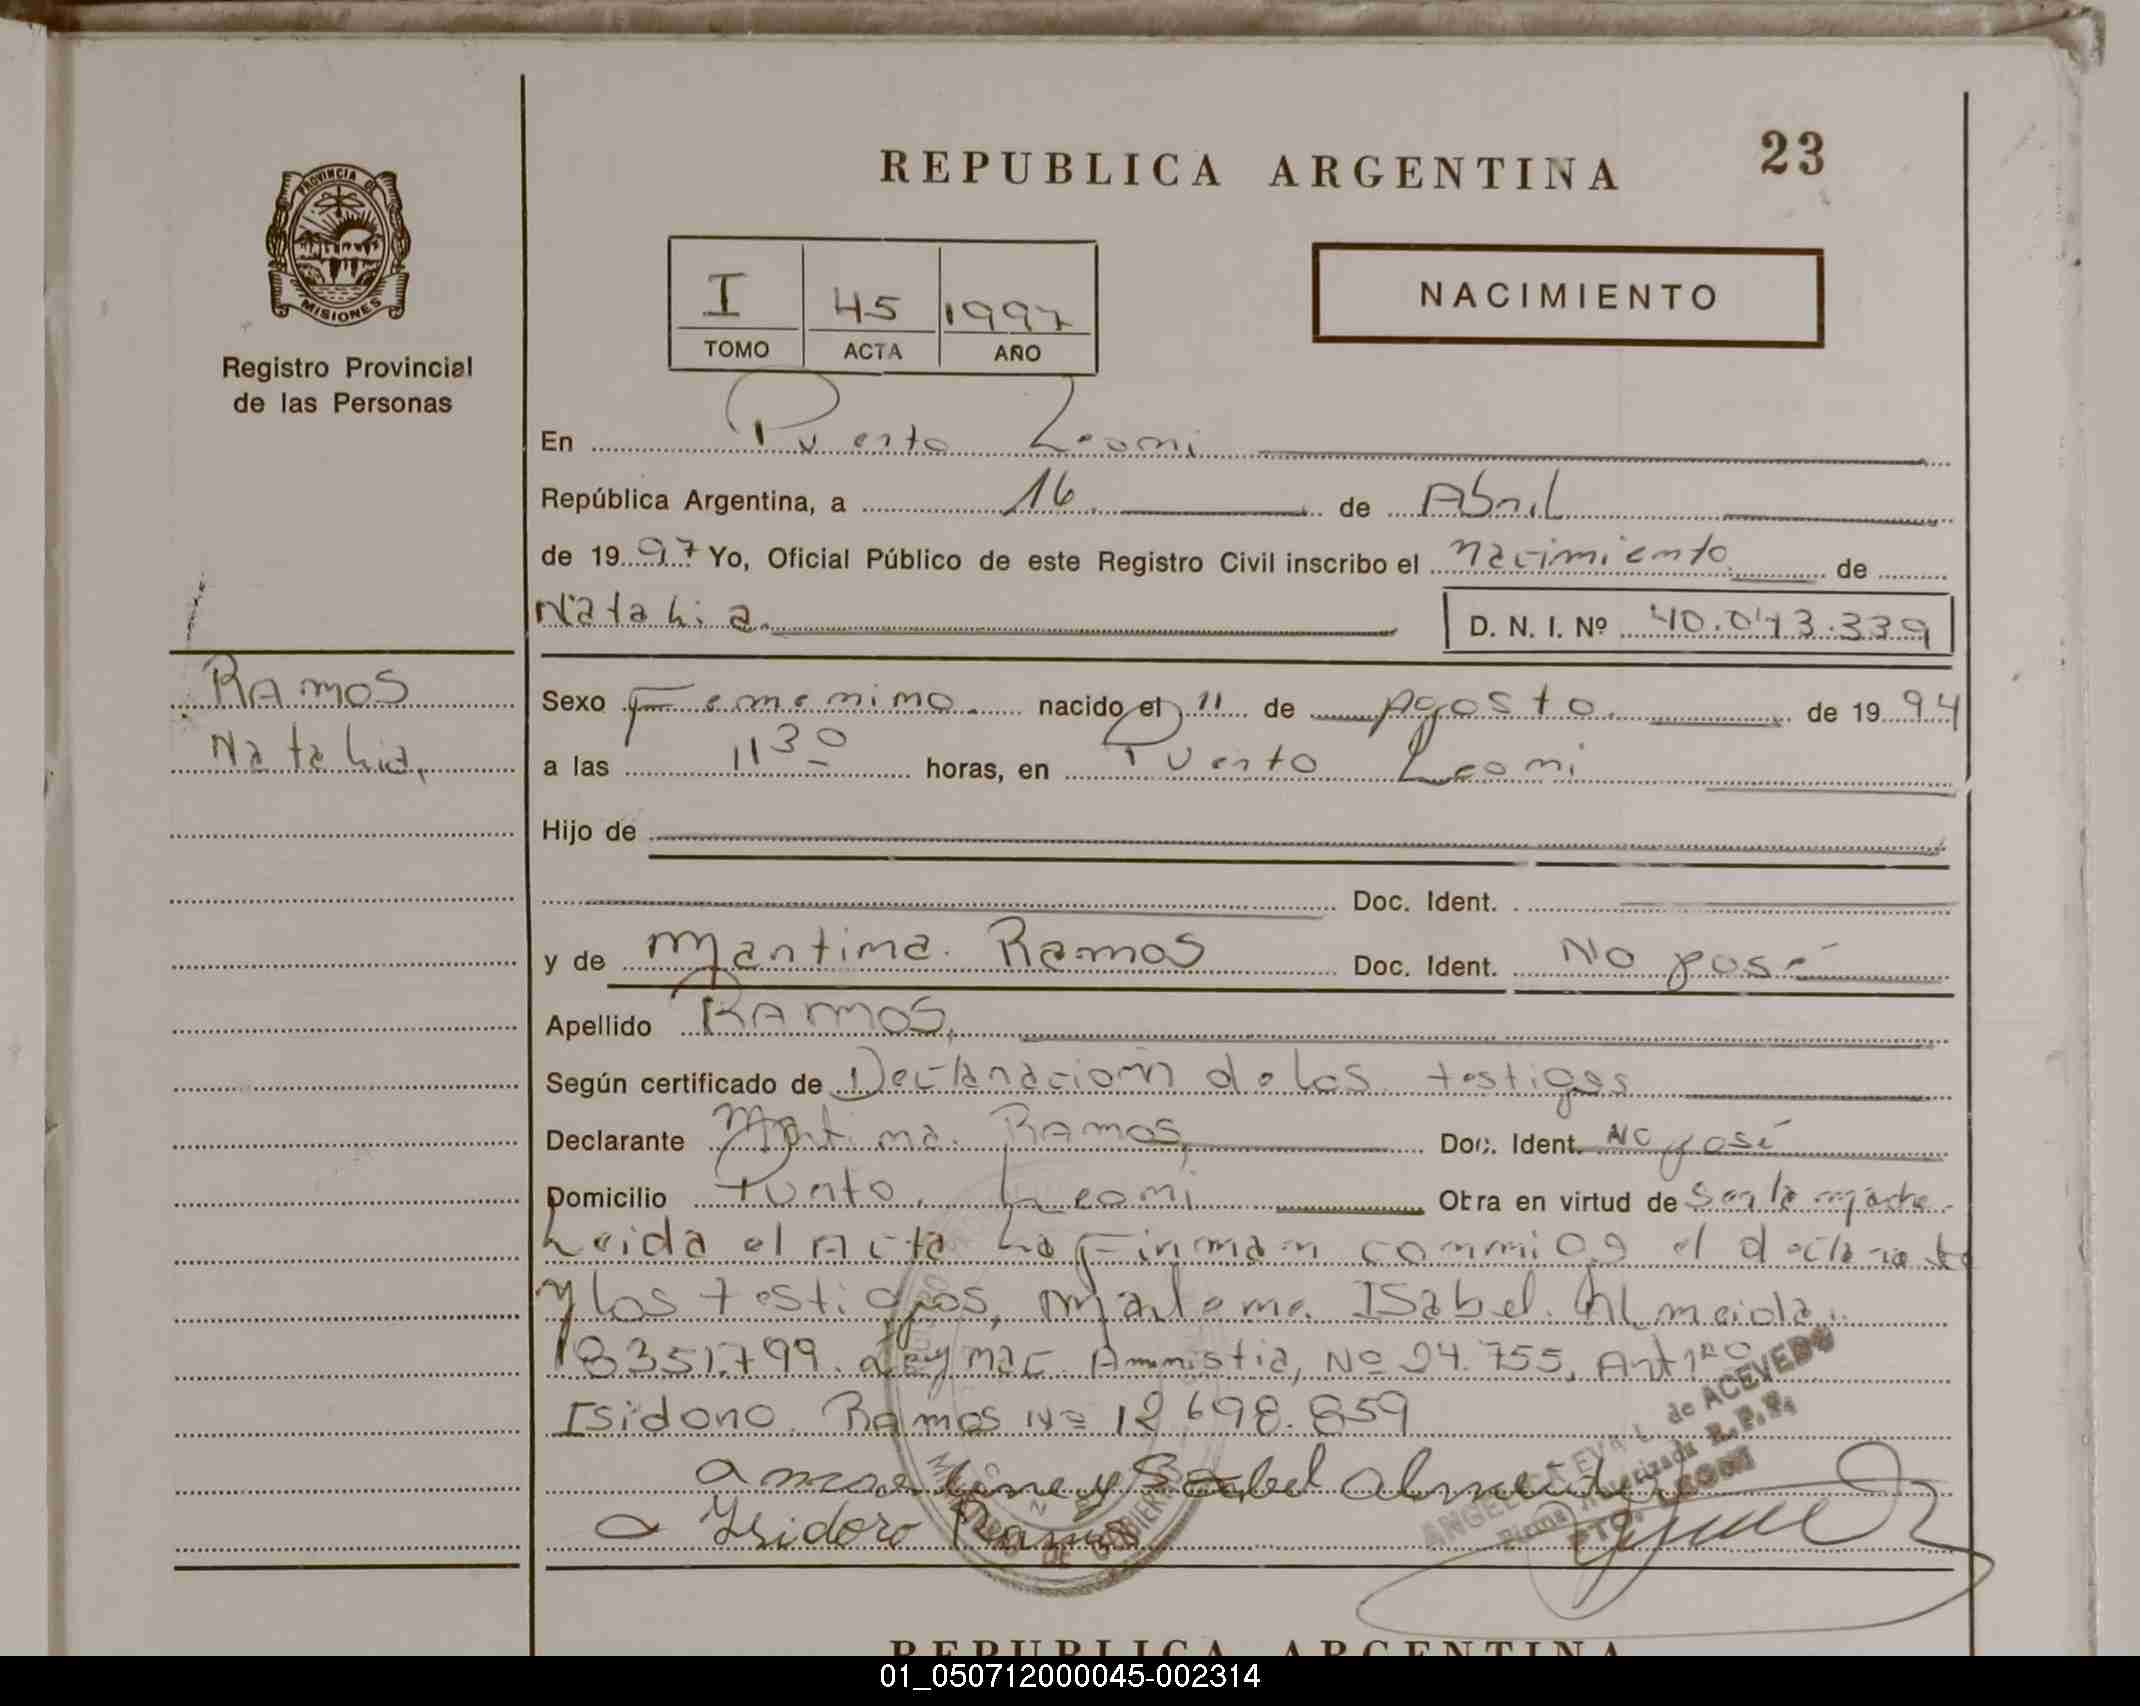 REPUBLICA ARGENTINA
23
PROVINCIA DE
MISIONES
Registro Provincial
de las Personas
I 45 1997
TOMO ACTA AÑO
NACIMIENTO
En Puerto Leoni
República Argentina, a 16 de Abril
de 1997 Yo, Oficial Público de este Registro Civil inscribo el nacimiento de
Natalia.
D. N. I. Nº 40.043.339
Ramos
Natalia,
Sexo Femenino. nacido el 11 de Agosto. de 1994
a las 11 30 horas, en Puerto Leoni
Hijo de
Doc. Ident.
y de Martina. Ramos Doc. Ident. No posé
Apellido RAMOS,
Según certificado de Declaración de los testigos
Declarante Martina. Ramos, Doc. Ident. No posé
Domicilio Puerto. Leoni Otra en virtud de Ser la madre.
Leida el Acta La Firman conmigo el declarante
y los testigos, Marlene Isabel. Almeida.
18351.799. Ley Nac. Amnistia, Nº 24.755, Art 1RO
Isidoro. Ramos Nº 12 698.859
Isabel Almeida
Isidoro Ramos
MINISTERIO DE GOBIERNO
ANGELICA EVA L. de ACEVEDO
Firma Autorizada R.P.P.
PTO. LEONI
REPUBLICA ARGENTINA
01_050712000045-002314